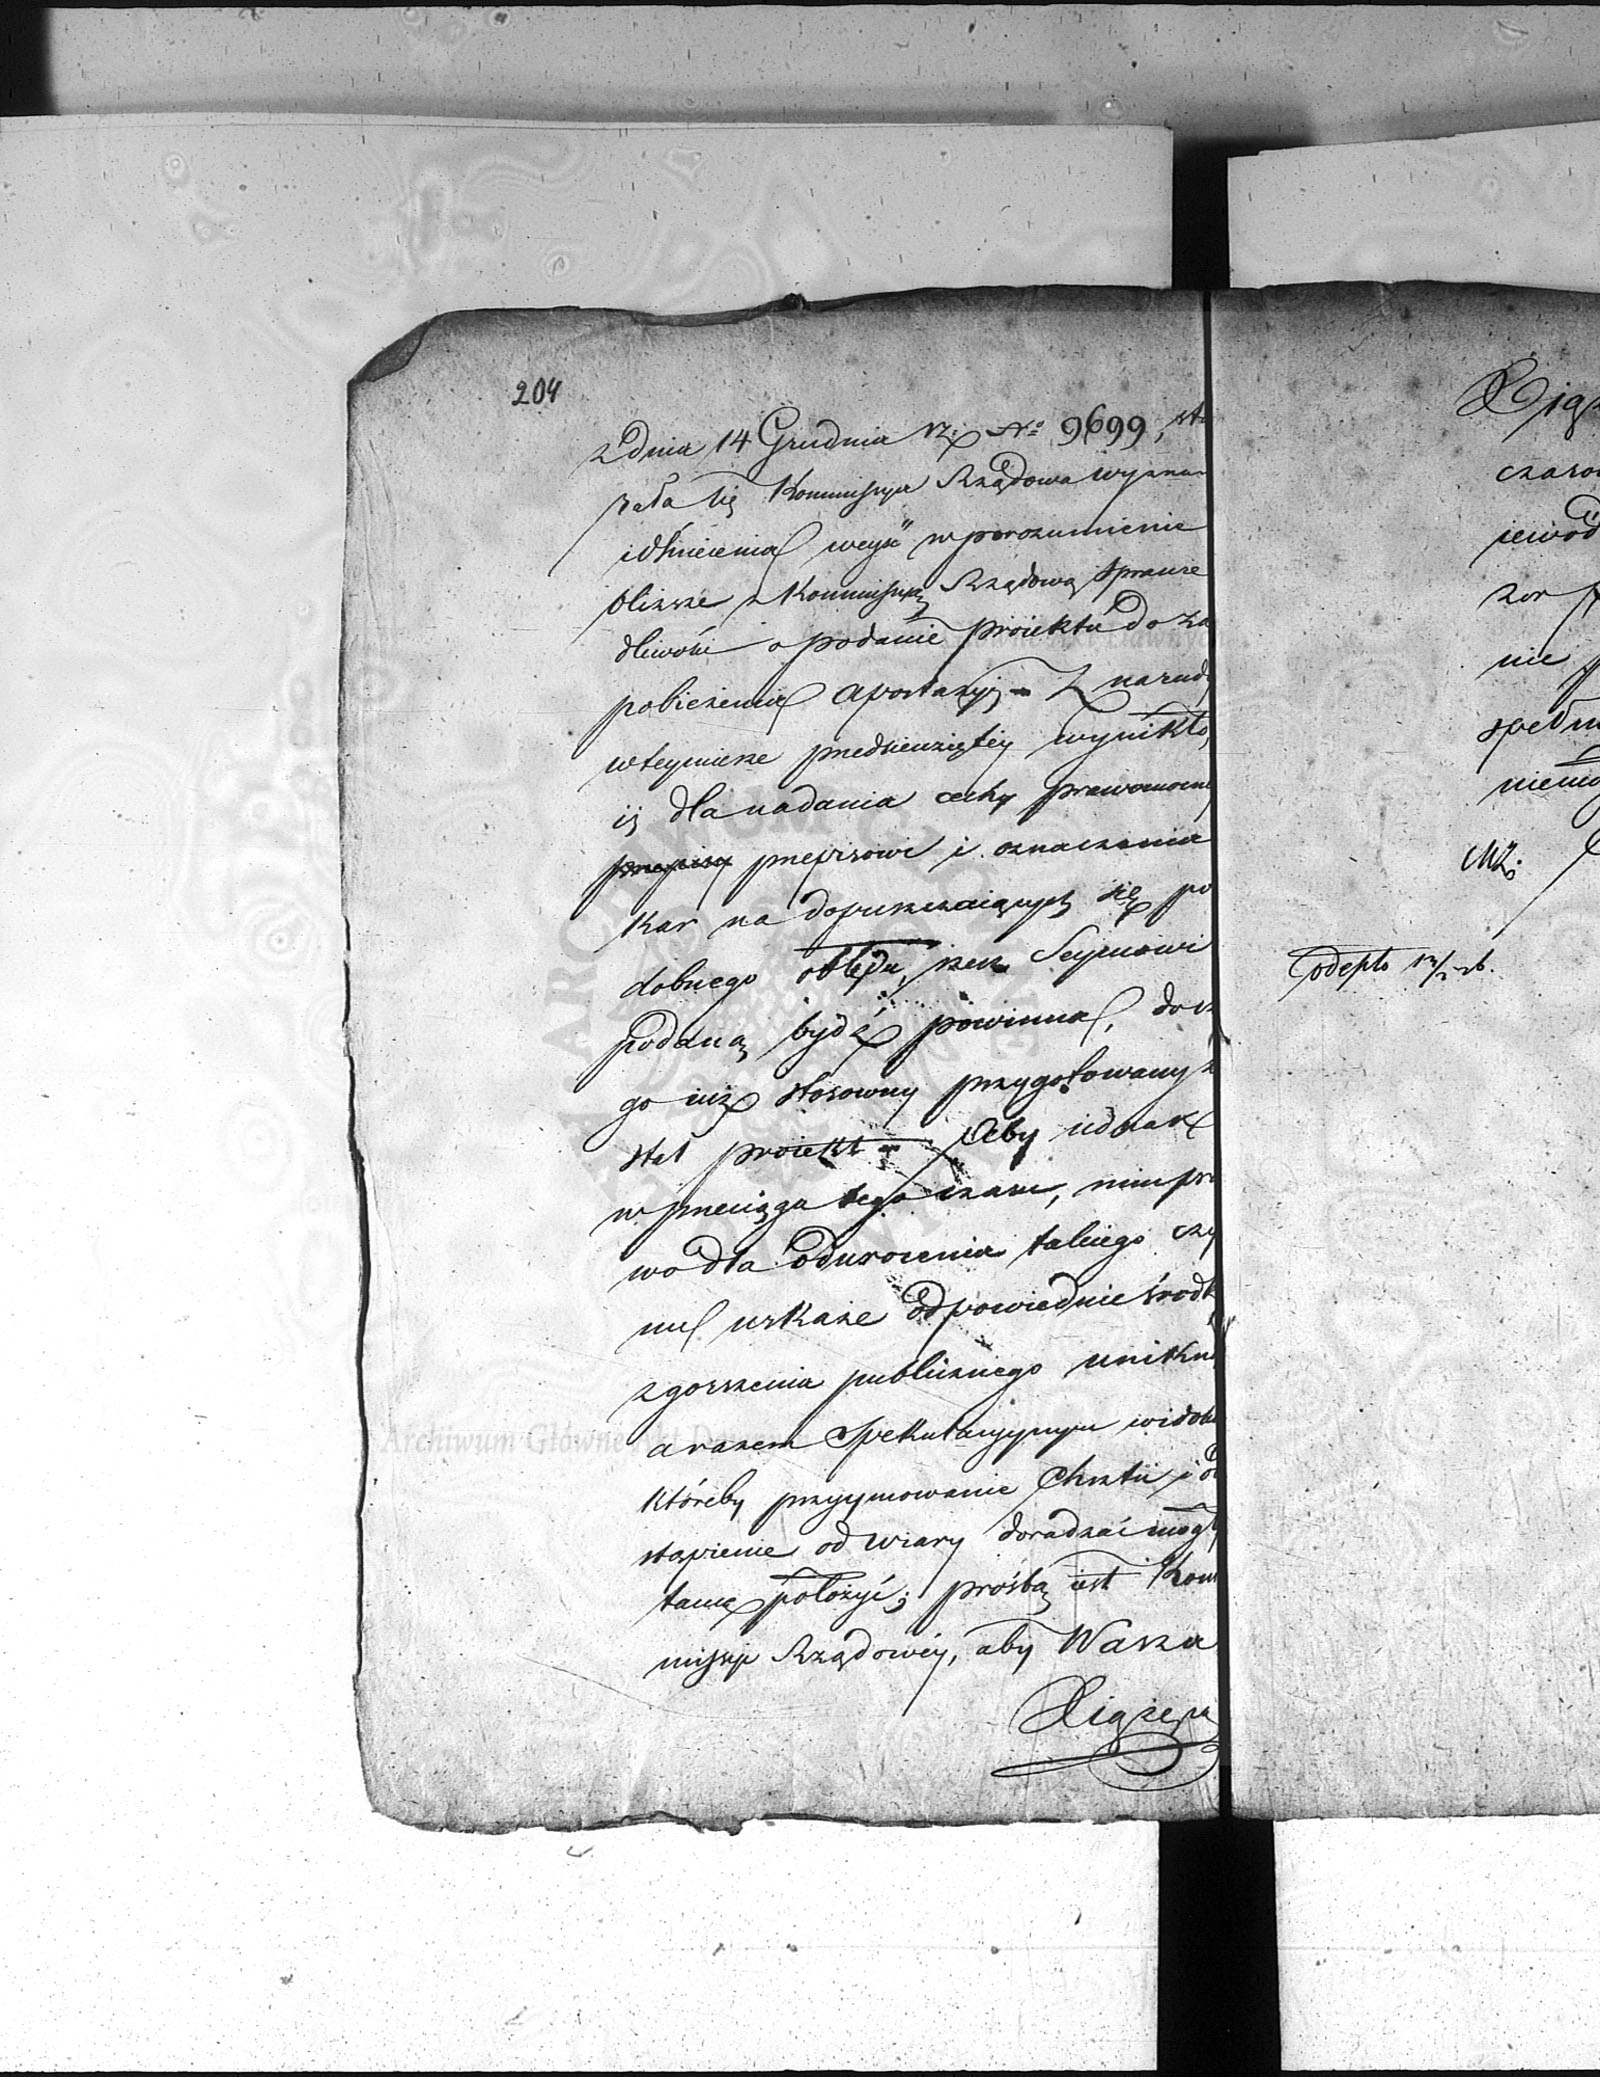 204
z dnia 14 Grudnia r.z. No 9699, sta
rała się Kommissya Rządowa Wyznań
i Oświecenia weyść w porozumienie
bliższe z Kommissyą Rządową Sprawie
dliwości o podanie proiektu do za
pobieżenia apostazyi – Z narady
w teymierze przedsięwziętey wynikło,
iż dla nadania cechy prawomocney
przepisy przepisowi i oznaczenia
kar na dopuszczaiących się po
dobnego obłędu, rzecz Seymowi
podaną bydź powinna, do cze
go iuż stosowny przygotowany zo
stał proiekt – Ażeby iednak
w przeciągu tego czasu, nim pra
wo dla odwrócenia takiego czy
nu wskaże odpowiednie środki
zgorszenia publicznego uniknąć
a razem spekulacyjnym widokom
któreby przyymowanie Chrztu i od
stąpienie od wiary doradzać mogły
tamę położyć; prośbą iest Kom
missyi Rządowéy, aby Wasza
Xiążęca
Xiąż
czaso
iewód
zor
nie p
spełn
nieniu
MZ.
odepto 13/2 26.